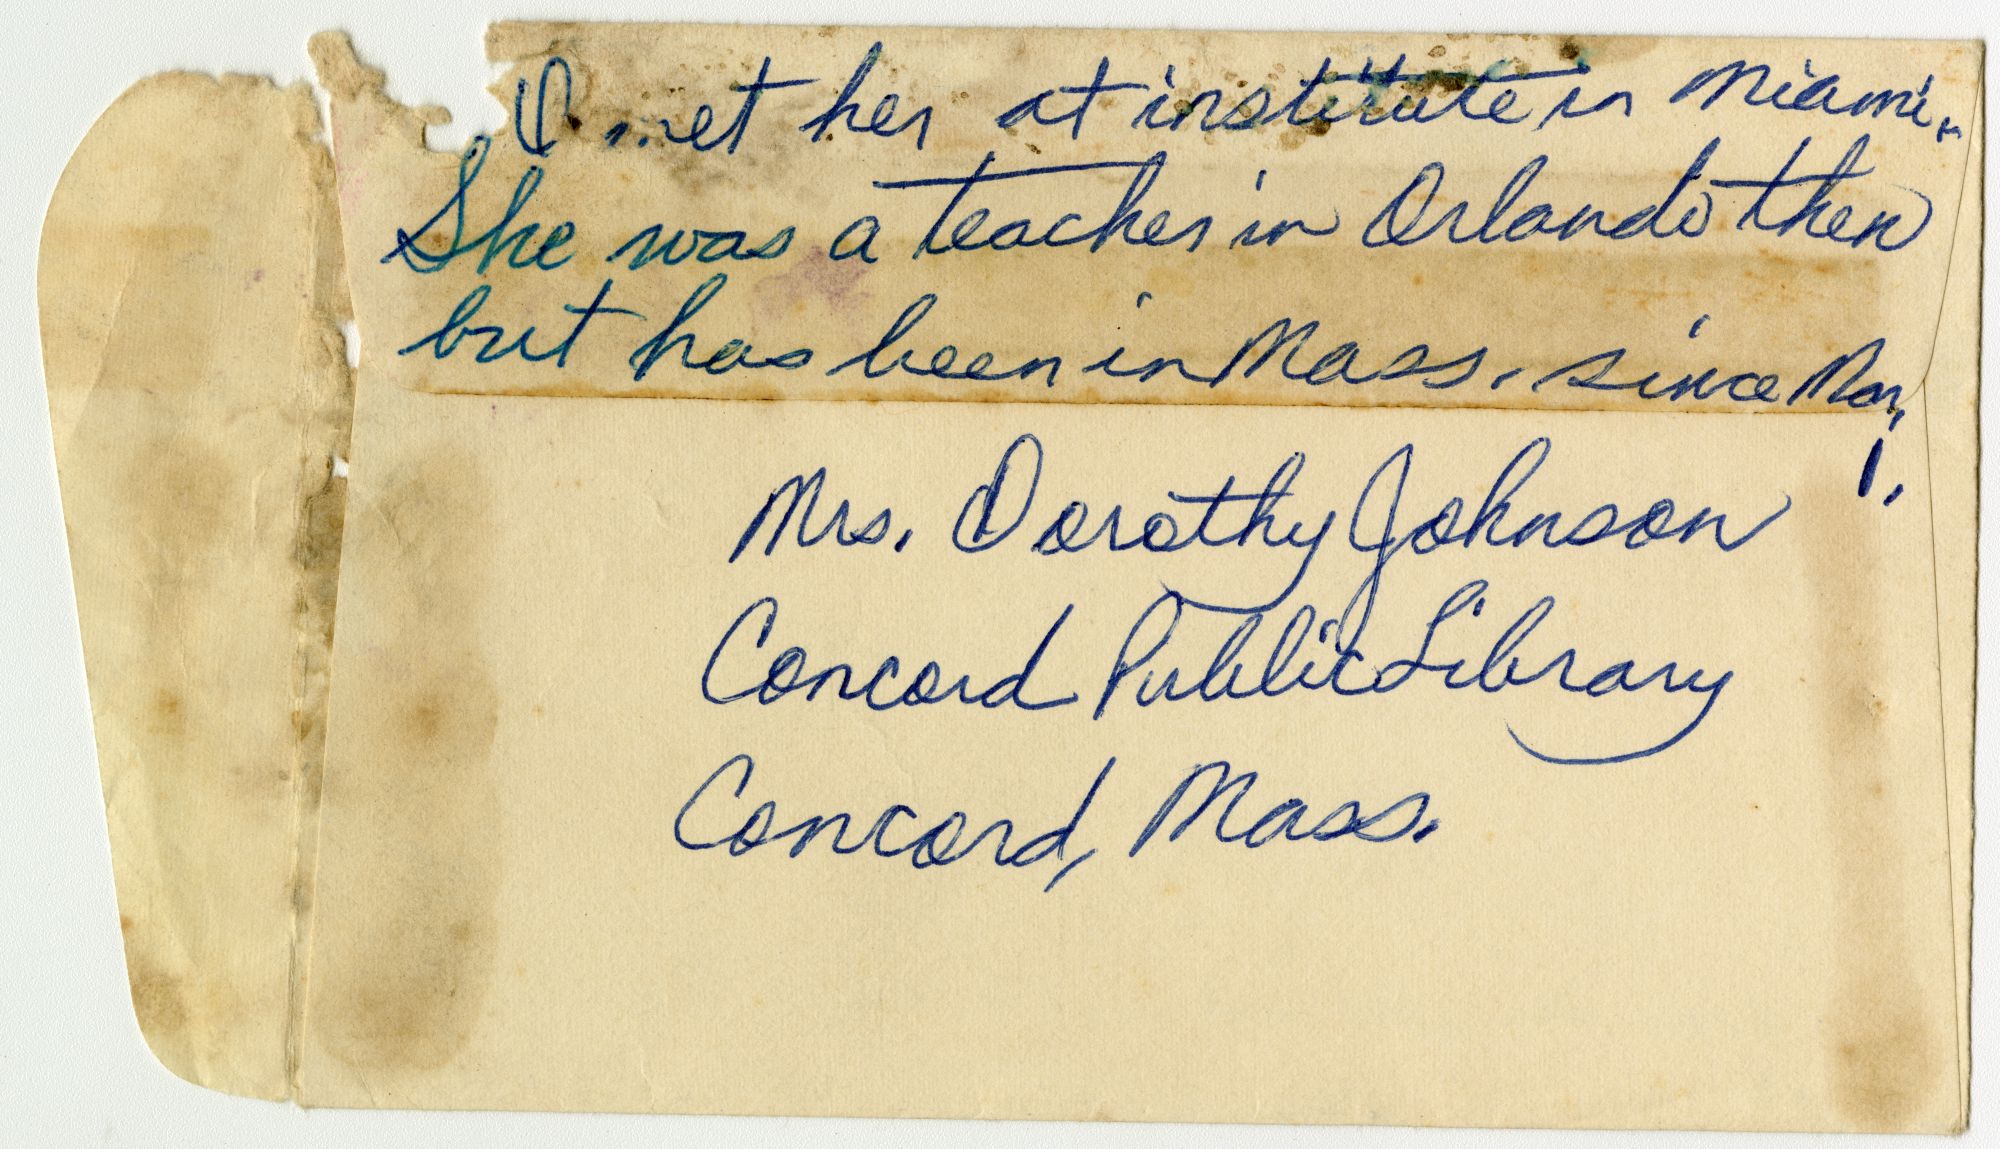 I met her at institute in Miami.
She was a teacher in Orlando then
but has been in Mass. since Mar,
1.
Mrs. Dorothy Johnson
Concord Public Library
Concord, Mass.